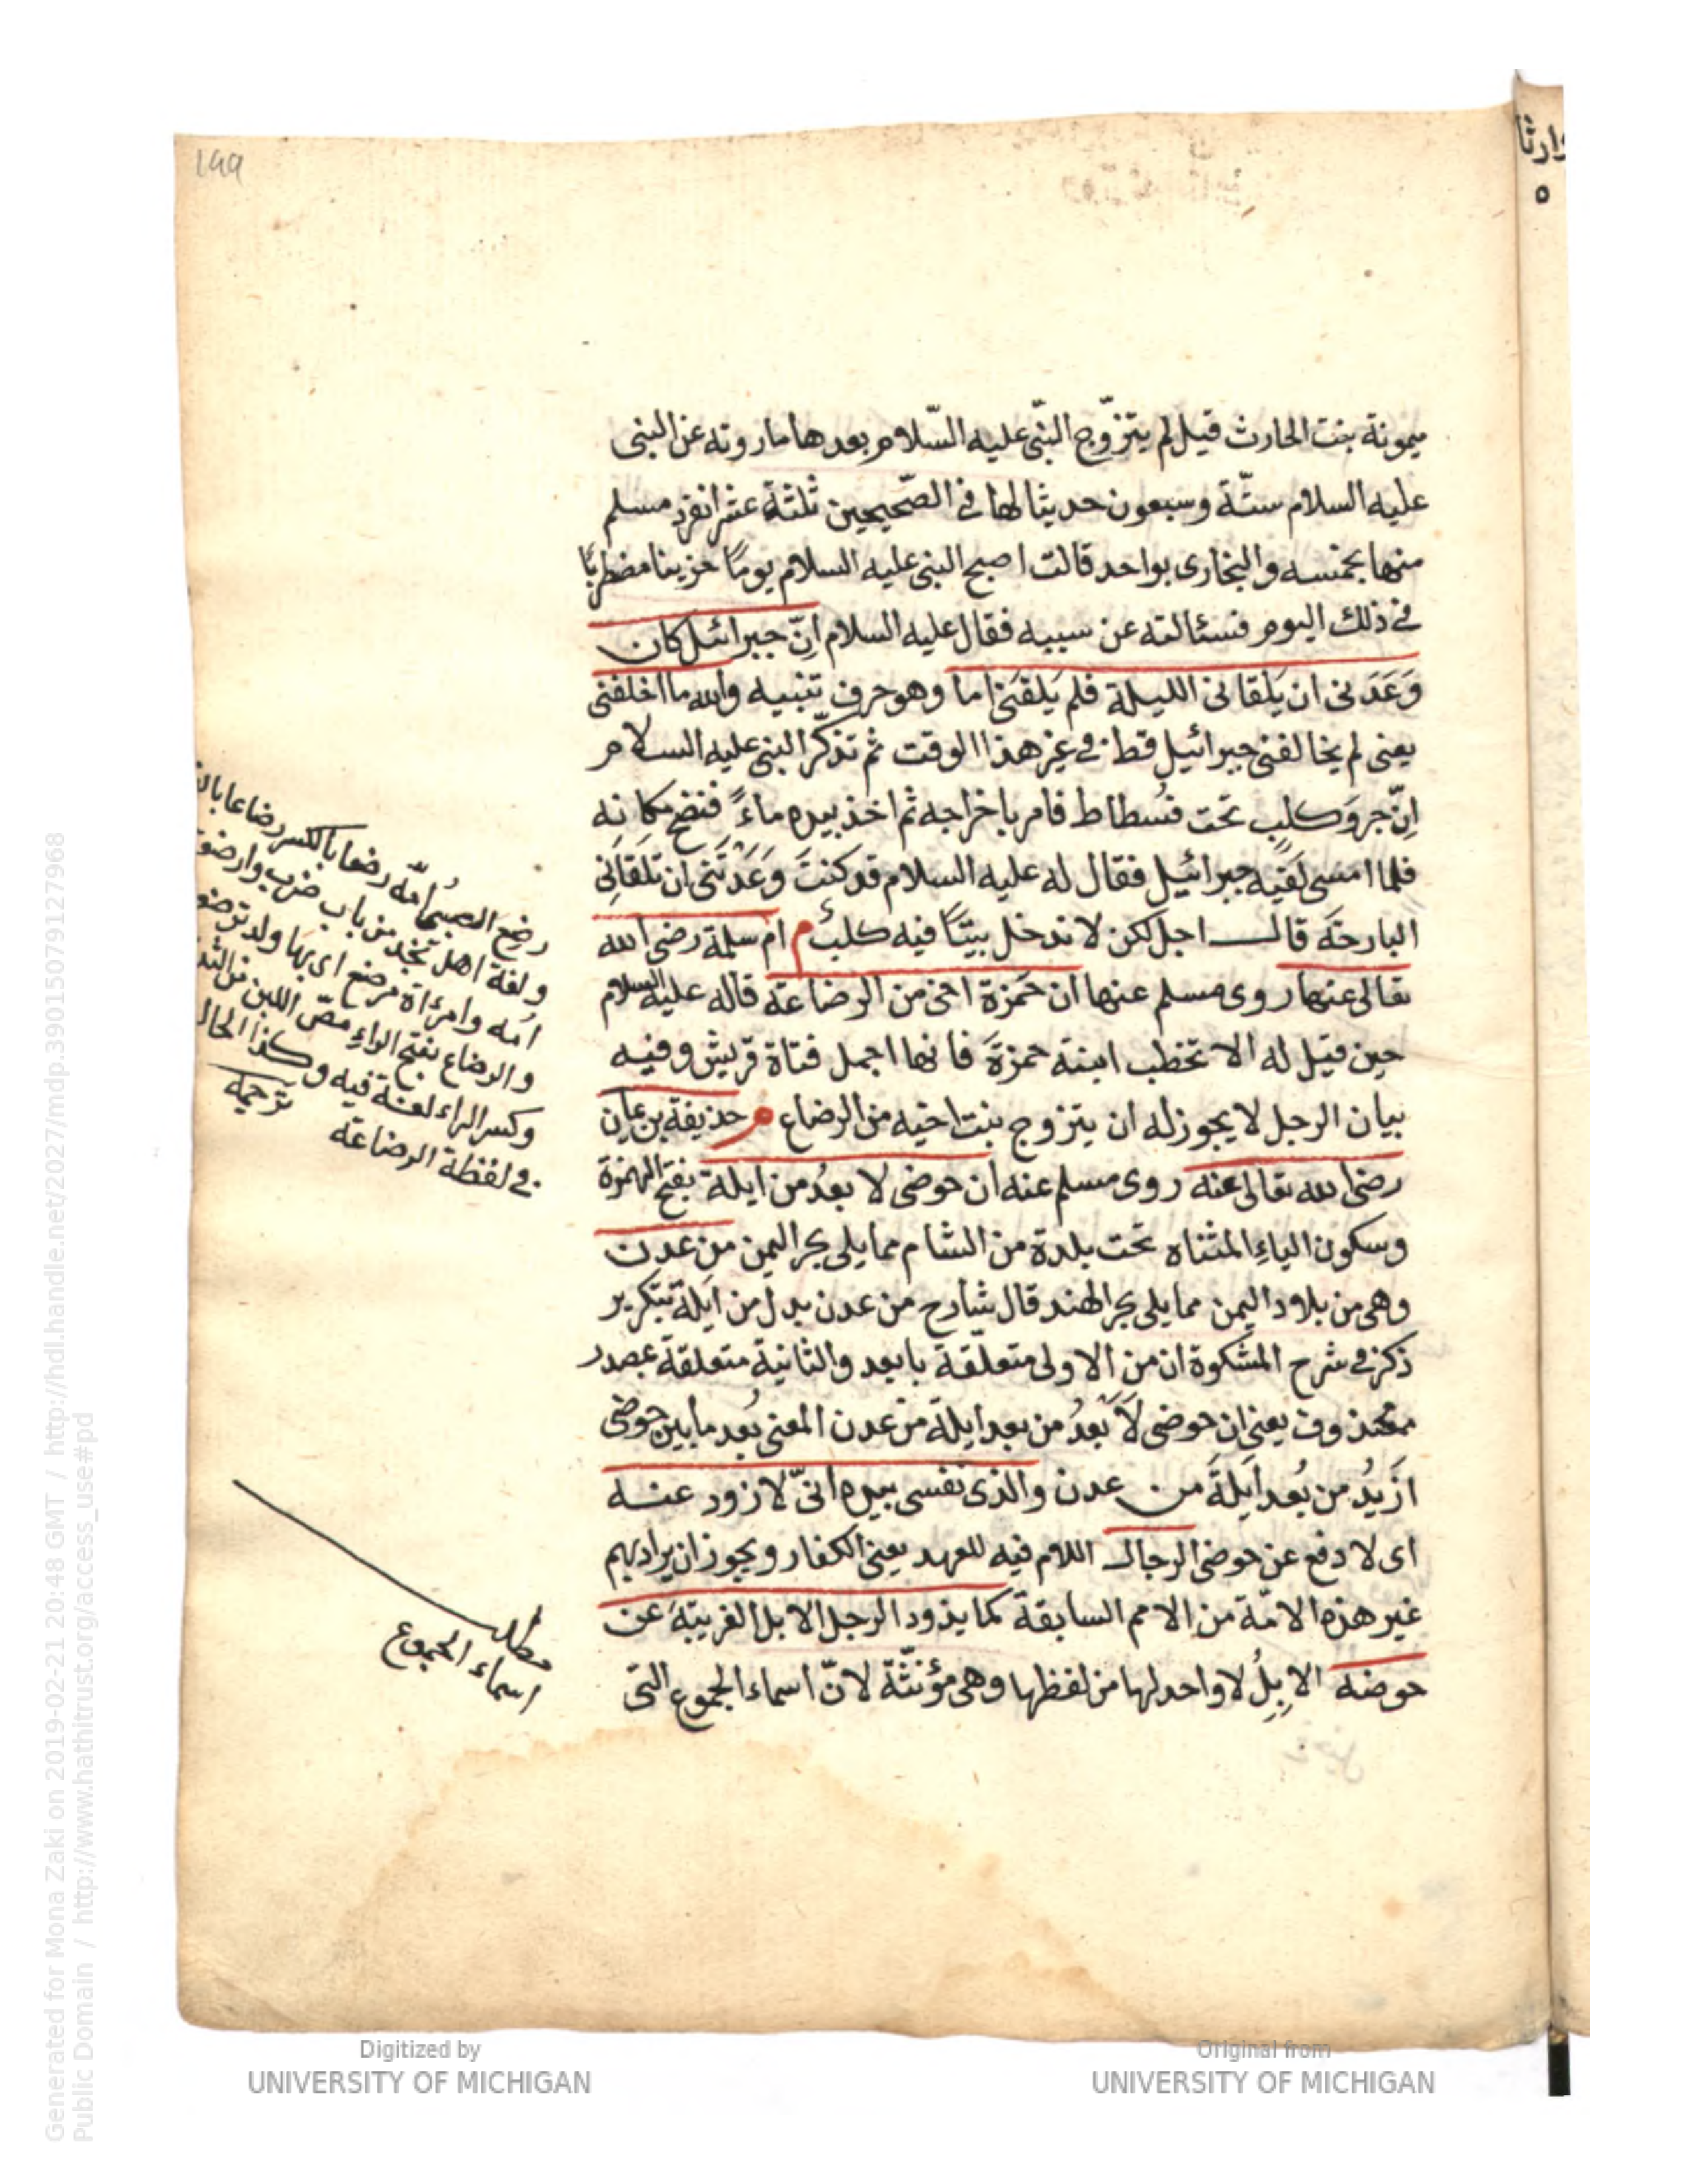 199
وارثا
٥
ميمونة بنت الحارث قيل لم يتزوّج النّبى عليه السّلام بعدها ما روته عن النبى
عليه السلام ستّة وسبعون حديثا لها فى الصّحيحين ثلثة عشر انفرد مسلم
منها بخمسه والبخارى بواحد قالت اصبح النبى عليه السلام يومًا حزينا مضطربًا
فى ذلك اليوم فسئالته عن سببه فقال عليه السلام اِنّ جبرائيل كان
وَعَدَنى ان يَلقانى الليلة فلم يَلقَنى اما وهو حرف تنبيه والله ما اخلفنى
يعنى لم يخالفنى جبرائيل قط فى غير هذا الوقت ثم تذكّر النبى عليه السلام
اِنّ جروَ كلبٍ تحت فسُطاط فامر باخراجه ثم اخذ بيده ماءً فنضح مكانه
فلما امسى لَقيَه جبرائيل فقال له عليه السلام قد كنتَ وَعَدْتَنى ان تلقَانِى
البارحَة قال اجل لكن لا ندخل بيتًا فيه كلبٌ م ام سلمة رضى الله
تعالى عنها روى مسلم عنها ان حَمزة اخى من الرضاعة قاله عليه السلام
حين قيل له الا تخطب ابنة حمزةَ فانها اجمل فتاة قريش وفيه
بيان الرجل لا يجوز له ان يتزوج بنت اخيه من الرضاع م حذيفة بن يمان
رضى الله تعالى عنه روى مسلم عنه ان حوضى لا بعدُ من ايلة بفتح الهمزة
وسكون الياءِ المثناه تحت بلدة من الشام مما يلى بحر اليمن من عدن
وهى من بلاد اليمن مما يلى بحر الهند قال شارح من عدن بدل من ايَلة بتكرير
ذكر فى شرح المشكوة ان من الاولى متعلقة بابعد والثانية متعلقة بمصدر
محذوف يعنى ان حوضى لَا بَعدُ من بعد ايلة من عدن المعنى بُعد ما بين حوضى
ازَيدُ من بُعد اَيلَةَ من عدن والذى نفسى بيده انىّ لازود عنه
اى لا دفع عن حوضى الرجال اللام فيه للعهد يعنى الكفار ويجوز ان يراد بهم
غير هذه الامّة من الامم السابقة كما يذود الرجل الابل الغريبَة عن
حوضه الاِبِلُ لا واحد لها من لفظها وهى مؤنثّة لانّ اسماء الجموع التى
رضع الصبىُّ امّه رضعا بالكسر رضاعا
ولغة اهل نجد من باب ضرب وارضعته
امّه وامرأة مرضع اى بها ولد ترضعه
والرضاع بفتح الراءِ مصّ اللبن من الثدى
وكسر الراء لغة فيه وكذا الحال
فى لفظة الرضاعة ترجمه
مطلب
اسماء الجموع
Digitized by
UNIVERSITY OF MICHIGAN
Original from
UNIVERSITY OF MICHIGAN
Generated for Mona Zaki on 2019-02-21 20:48 GMT / http://hdl.handle.net/2027/mdp.39015079127968
Public Domain / http://www.hathitrust.org/access_use#pd